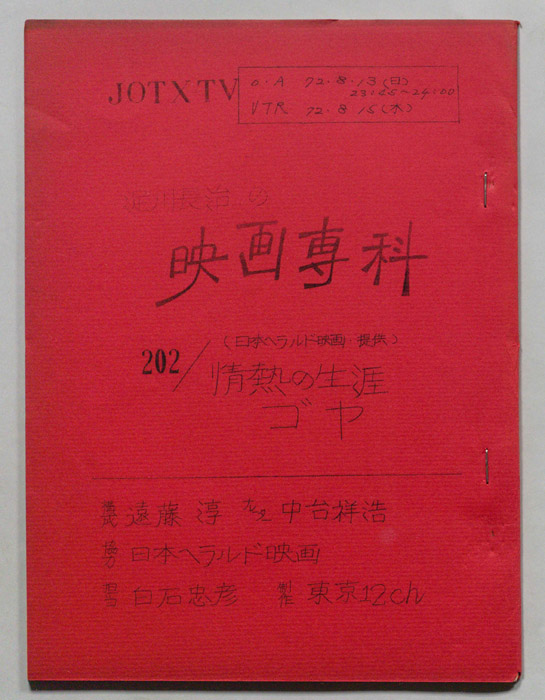 JOTXTV
O.A 72.8.13(日)
23:45~24:00
VTR 72.8.16(水)
淀川長治の
映画専科
(日本ヘラルド映画・提供)
202/情熱の生涯
ゴヤ
構成 遠藤淳 中台祥浩
協力 日本ヘラルド映画
担当 白石忠彦 製作 東京12ch